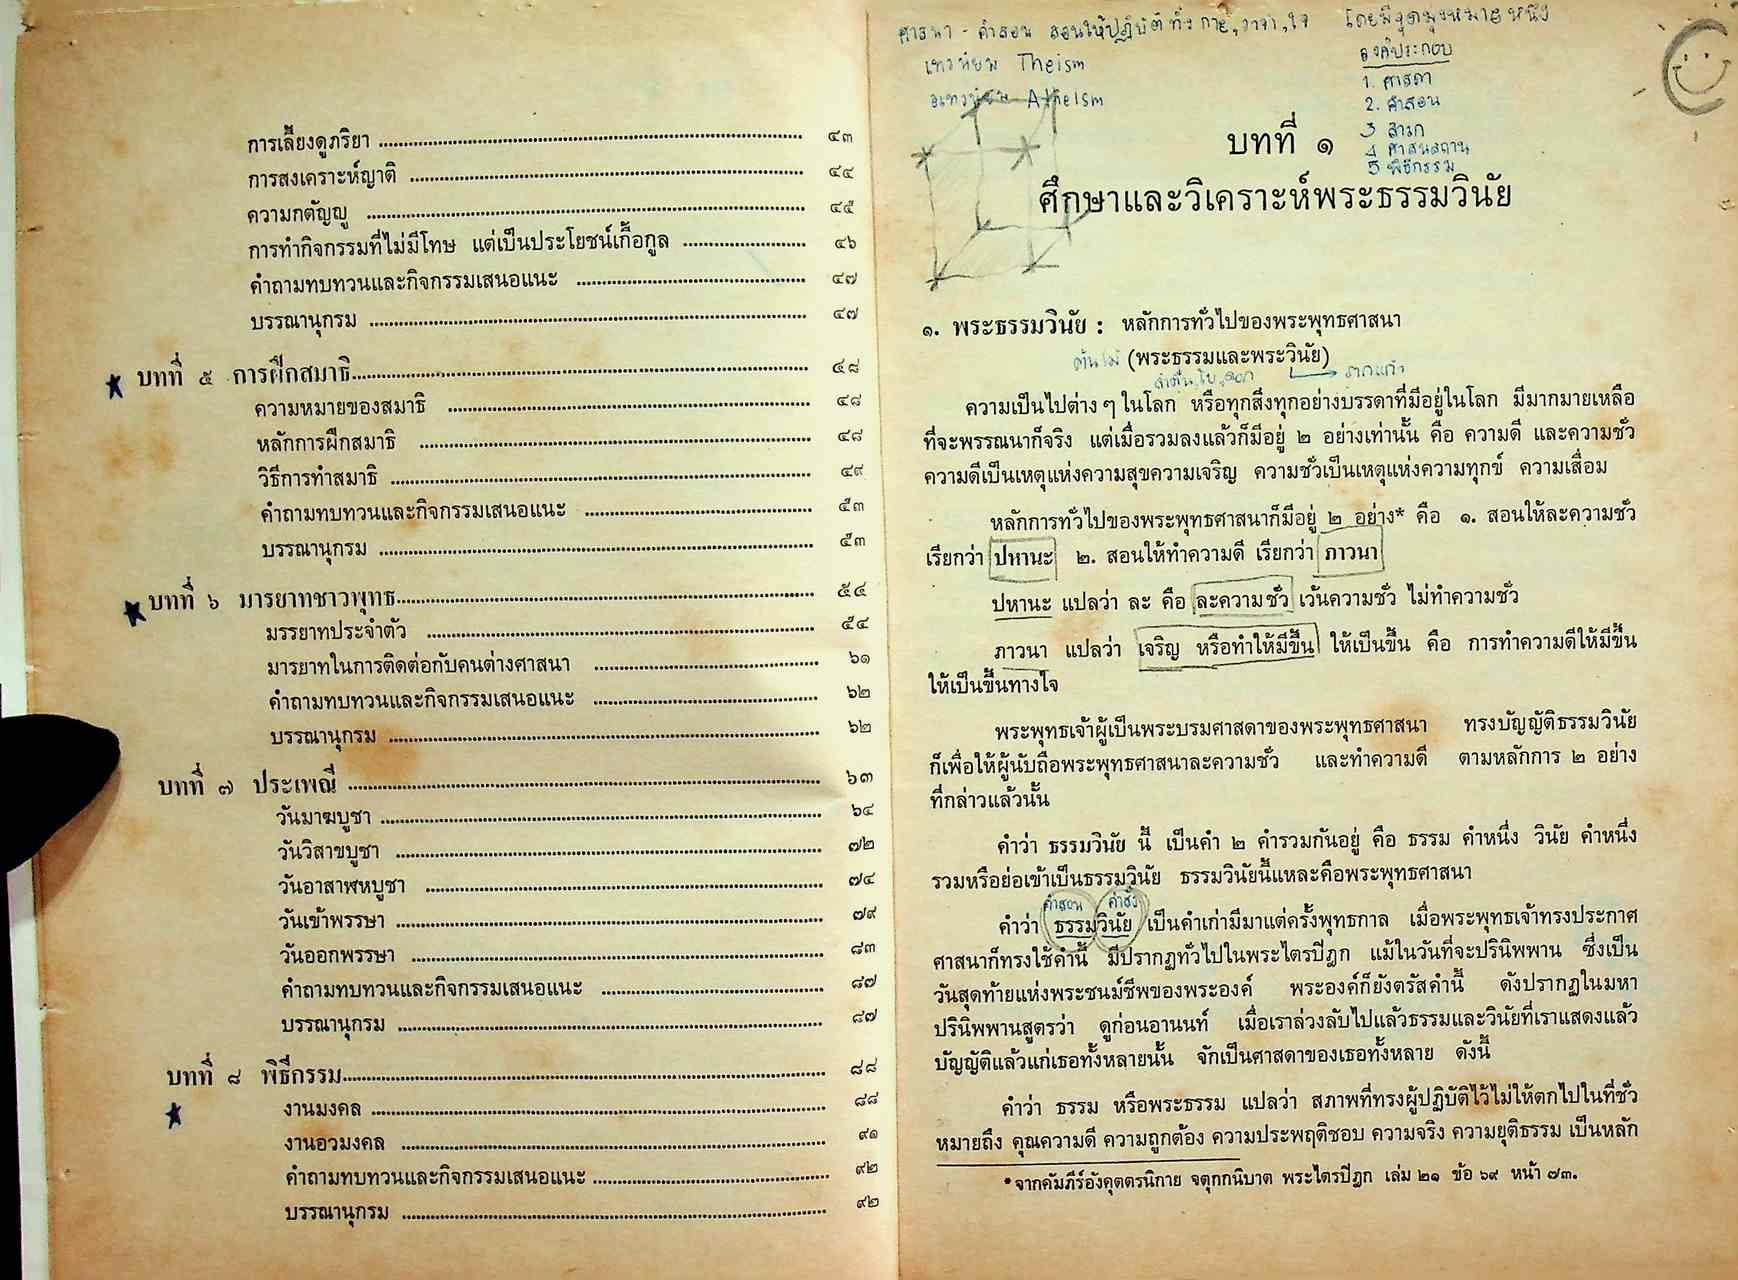 การเลี้ยงดูภริยา ........ ๔๓
การสงเคราะห์ญาติ ........ ๔๔
ความกตัญญู ........ ๔๕
การทำกิจกรรมที่ไม่มีโทษ แต่เป็นประโยชน์เกื้อกูล ........ ๔๖
คำถามทบทวนและกิจกรรมเสนอแนะ ........ ๔๗
บรรณานุกรม ........ ๔๗
บทที่ ๕ การฝึกสมาธิ ........ ๔๘
ความหมายของสมาธิ ........ ๔๘
หลักการฝึกสมาธิ ........ ๔๘
วิธีการทำสมาธิ ........ ๔๙
คำถามทบทวนและกิจกรรมเสนอแนะ ........ ๕๓
บรรณานุกรม ........ ๕๓
บทที่ ๖ มารยาทชาวพุทธ ........ ๕๔
มรรยาทประจำตัว ........ ๕๔
มารยาทในการติดต่อกับคนต่างศาสนา ........ ๖๑
คำถามทบทวนและกิจกรรมเสนอแนะ ........ ๖๒
บรรณานุกรม ........ ๖๒
บทที่ ๗ ประเพณี ........ ๖๓
วันมาฆบูชา ........ ๖๔
วันวิสาขบูชา ........ ๗๒
วันอาสาฬหบูชา ........ ๗๔
วันเข้าพรรษา ........ ๗๙
วันออกพรรษา ........ ๘๓
คำถามทบทวนและกิจกรรมเสนอแนะ ........ ๘๗
บรรณานุกรม ........ ๘๗
บทที่ ๘ พิธีกรรม ........ ๘๘
งานมงคล ........ ๘๘
งานอวมงคล ........ ๙๑
คำถามทบทวนและกิจกรรมเสนอแนะ ........ ๙๒
บรรณานุกรม ........ ๙๒
ศาสนา - คำสอน สอนให้ปฏิบัติทั้ง กาย, วาจา, ใจ โดยมีจุดมุ่งหมายหนึ่ง
เทวนิยม Theism
อเทวนิยม Atheism
องค์ประกอบ
1. ศาสดา
2. คำสอน
3 สาวก
4 ศาสนสถาน
5 พิธีกรรม
บทที่ ๑
ศึกษาและวิเคราะห์พระธรรมวินัย
๑. พระธรรมวินัย : หลักการทั่วไปของพระพุทธศาสนา
ต้นไม้ (พระธรรมและพระวินัย)
ลำต้น, ใบ, ดอก รากแก้ว
ความเป็นไปต่าง ๆ ในโลก หรือทุกสิ่งทุกอย่างบรรดาที่มีอยู่ในโลก มีมากมายเหลือ
ที่จะพรรณนาก็จริง แต่เมื่อรวมลงแล้วก็มีอยู่ ๒ อย่างเท่านั้น คือ ความดี และความชั่ว
ความดีเป็นเหตุแห่งความสุขความเจริญ ความชั่วเป็นเหตุแห่งความทุกข์ ความเสื่อม
หลักการทั่วไปของพระพุทธศาสนาก็มีอยู่ ๒ อย่าง* คือ ๑. สอนให้ละความชั่ว
เรียกว่า ปหานะ ๒. สอนให้ทำความดี เรียกว่า ภาวนา
ปหานะ แปลว่า ละ คือ ละความชั่ว เว้นความชั่ว ไม่ทำความชั่ว
ภาวนา แปลว่า เจริญ หรือทำให้มีขึ้น ให้เป็นขึ้น คือ การทำความดีให้มีขึ้น
ให้เป็นขึ้นทางใจ
พระพุทธเจ้าผู้เป็นพระบรมศาสดาของพระพุทธศาสนา ทรงบัญญัติธรรมวินัย
ก็เพื่อให้ผู้นับถือพระพุทธศาสนาละความชั่ว และทำความดี ตามหลักการ ๒ อย่าง
ที่กล่าวแล้วนั้น
คำว่า ธรรมวินัย นี้ เป็นคำ ๒ คำรวมกันอยู่ คือ ธรรม คำหนึ่ง วินัย คำหนึ่ง
รวมหรือย่อเข้าเป็นธรรมวินัย ธรรมวินัยนี้แหละคือพระพุทธศาสนา
คำสอน คำสั่ง
คำว่า ธรรมวินัย เป็นคำเก่ามีมาแต่ครั้งพุทธกาล เมื่อพระพุทธเจ้าทรงประกาศ
ศาสนาก็ทรงใช้คำนี้ มีปรากฏทั่วไปในพระไตรปิฎก แม้ในวันที่จะปรินิพพาน ซึ่งเป็น
วันสุดท้ายแห่งพระชนม์ชีพของพระองค์ พระองค์ก็ยังตรัสคำนี้ ดังปรากฏในมหา
ปรินิพพานสูตรว่า ดูก่อนอานนท์ เมื่อเราล่วงลับไปแล้วธรรมและวินัยที่เราแสดงแล้ว
บัญญัติแล้วแก่เธอทั้งหลายนั้น จักเป็นศาสดาของเธอทั้งหลาย ดังนี้
คำว่า ธรรม หรือพระธรรม แปลว่า สภาพที่ทรงผู้ปฏิบัติไว้ไม่ให้ตกไปในที่ชั่ว
หมายถึง คุณความดี ความถูกต้อง ความประพฤติชอบ ความจริง ความยุติธรรม เป็นหลัก
*จากคัมภีร์อังคุตตรนิกาย จตุกกนิบาต พระไตรปิฎก เล่ม ๒๑ ข้อ ๖๙ หน้า ๗๓.